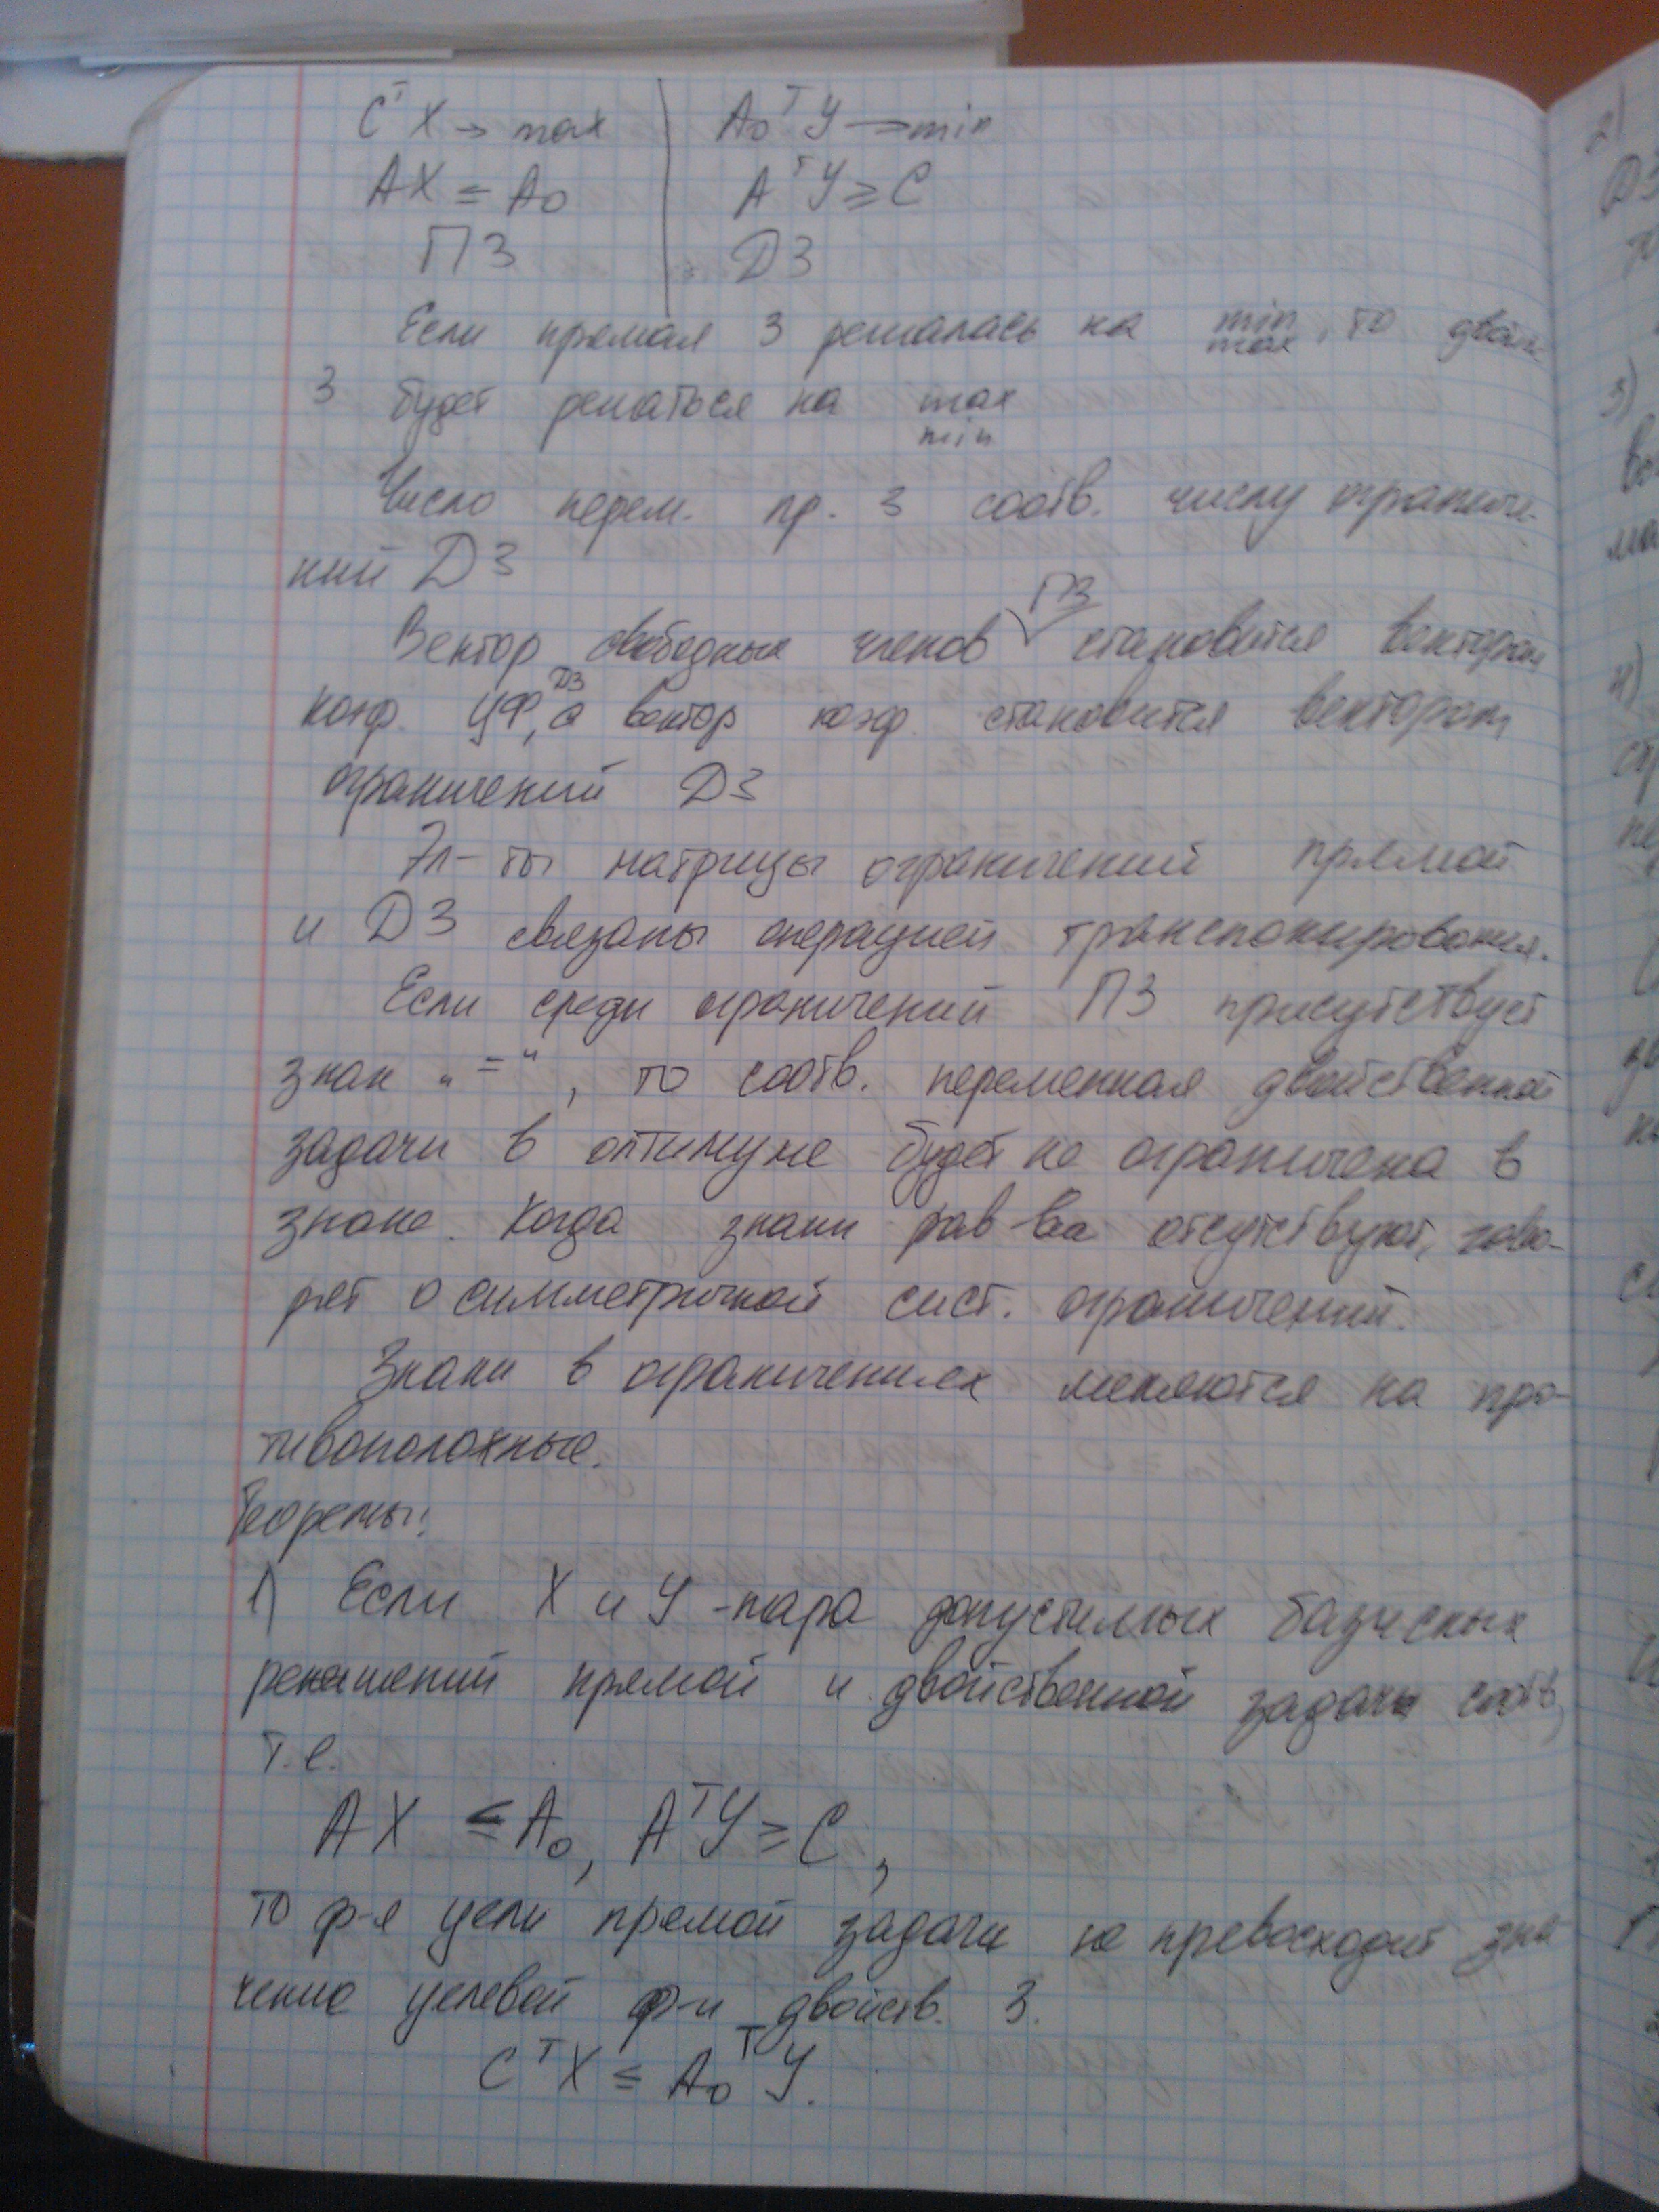 C^T X → max | A₀^T Y → min
AX ≤ A₀ | A^T Y ≥ C
ПЗ | ДЗ
Если прямая З решалась на min/max, то двойств.
З будет решаться на max/min
Число перем. пр. З соотв. числу ограниче-
ний ДЗ
Вектор свободных членов ПЗ становится вектором
коэф. ЦФ ДЗ, а вектор коэф. становится вектором
ограничений ДЗ
Эл-ты матрицы ограничений прямой
и ДЗ связаны операцией транспонирования.
Если среди ограничений ПЗ присутствует
знак „=“, то соотв. переменная двойственной
задачи в оптимуме будет не ограничена в
знаке. Когда знаки рав-ва отсутствуют, гово-
рят о симметричной сист. ограничений.
Знаки в ограничениях меняются на про-
тивоположные.
Теоремы:
1) Если X и Y - пара допустимых базисных
решений прямой и двойственной задачи соотв,
т.е.
AX ≤ A₀, A^T Y ≥ C,
то ф-я цели прямой задачи не превосходит зна-
чение целевой ф-и двойств. З.
C^T X ≤ A₀^T Y.
2)
ДЗ
3)
4)